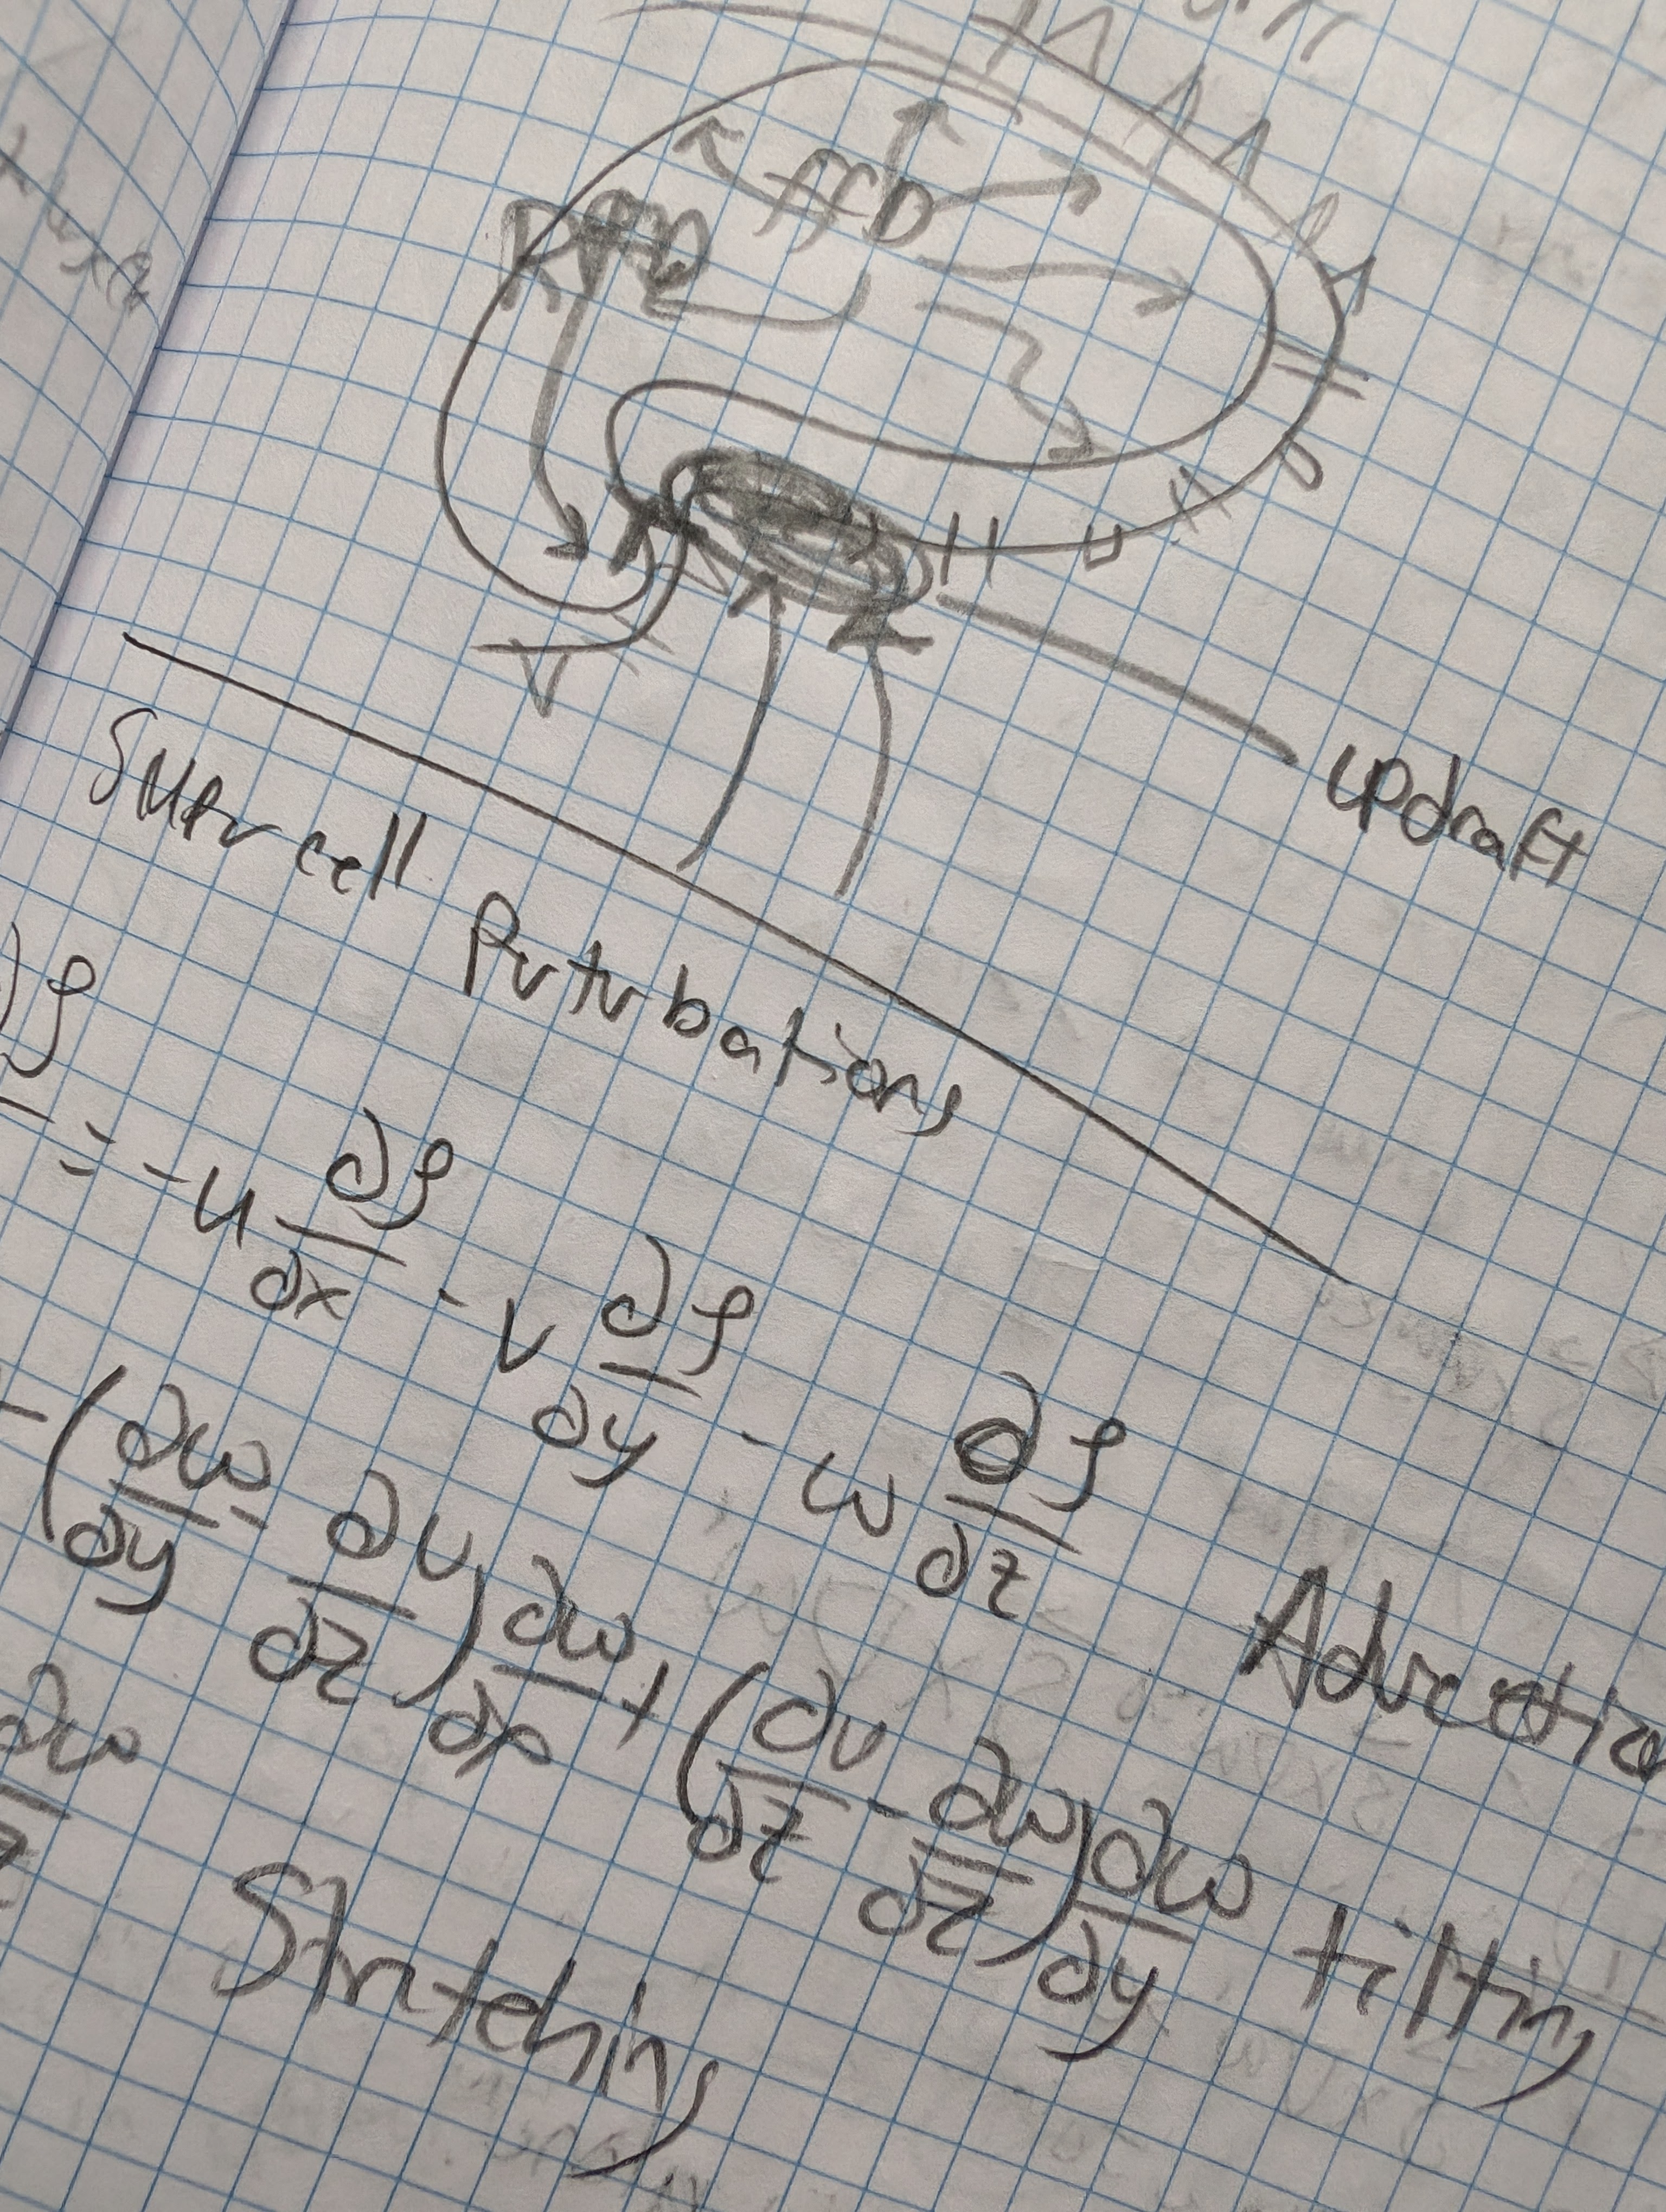 FFD
RFD
updraft
Supercell Purturbations
∂ζ = -u ∂ζ/∂x - v ∂ζ/∂y - w ∂ζ/∂z Advection
(∂w/∂y - ∂v/∂z) ∂w/∂x + (∂u/∂z - ∂w/∂z) ∂w/∂y tilting
∂w/∂z Stretching